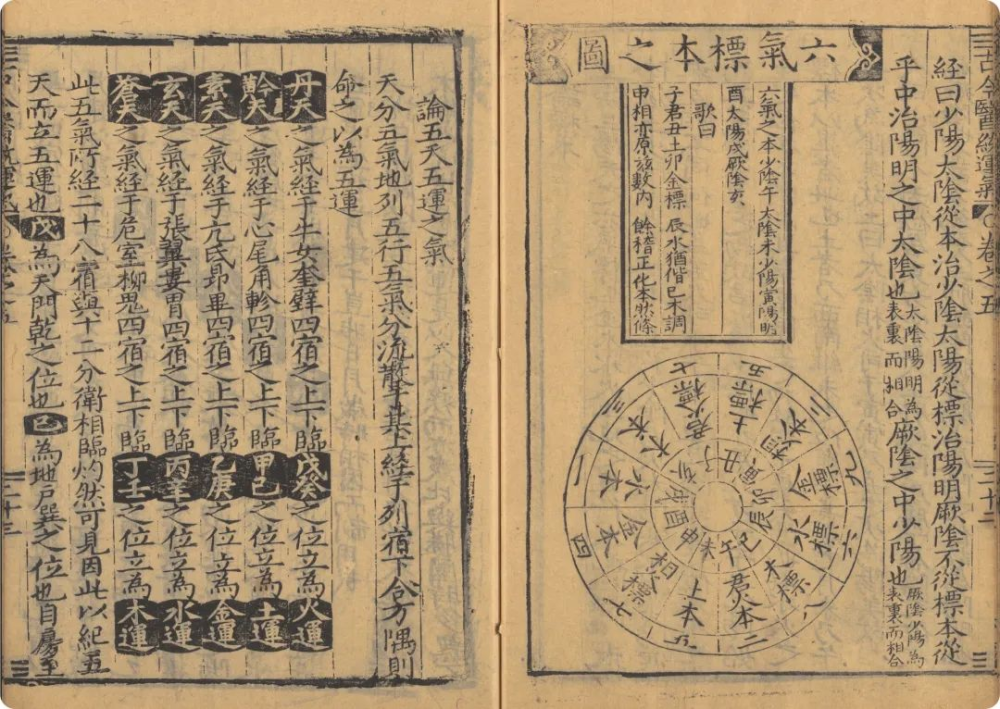 古今醫統運氣 ○卷之五 二十二
經曰少陽太陰從本治少陰太陽從標治陽明厥陰不從標本從
乎中治陽明之中太陰也太陰陽明為表裏而相合厥陰之中少陽也厥陰少陽為表裏而相合
六氣標本之圖
六氣之本少陰午太陰未少陽寅陽明
酉太陽戌厥陰亥
歌曰
子君丑土卯金標 辰水猶偕巳木調
申相亦原茲數內 餘稽正化本然條
子 君火標 七
丑 土標 五
寅 相火本 二
卯 金標 九
辰 水標 六
巳 木標 八
午 君火本 二
未 土本 五
申 相火標 七
酉 金本 四
戌 水本 一
亥 木本 三
論五天五運之氣
天分五氣地列五行五氣分流散于其上經于列宿下合方隅則
命之以為五運
丹天之氣經于牛女奎壁四宿之上下臨戊癸之位立為火運
黅天之氣經于心尾角軫四宿之上下臨甲己之位立為土運
素天之氣經于亢氐昴畢四宿之上下臨乙庚之位立為金運
玄天之氣經于張翼婁胃四宿之上下臨丙辛之位立為水運
蒼天之氣經于危室柳鬼四宿之上下臨丁壬之位立為木運
此五氣所經二十八宿與十二分衛相臨灼然可見因此以紀五
天而立五運也戊為天門乾之位也己為地戶巽之位也自房至
二十三